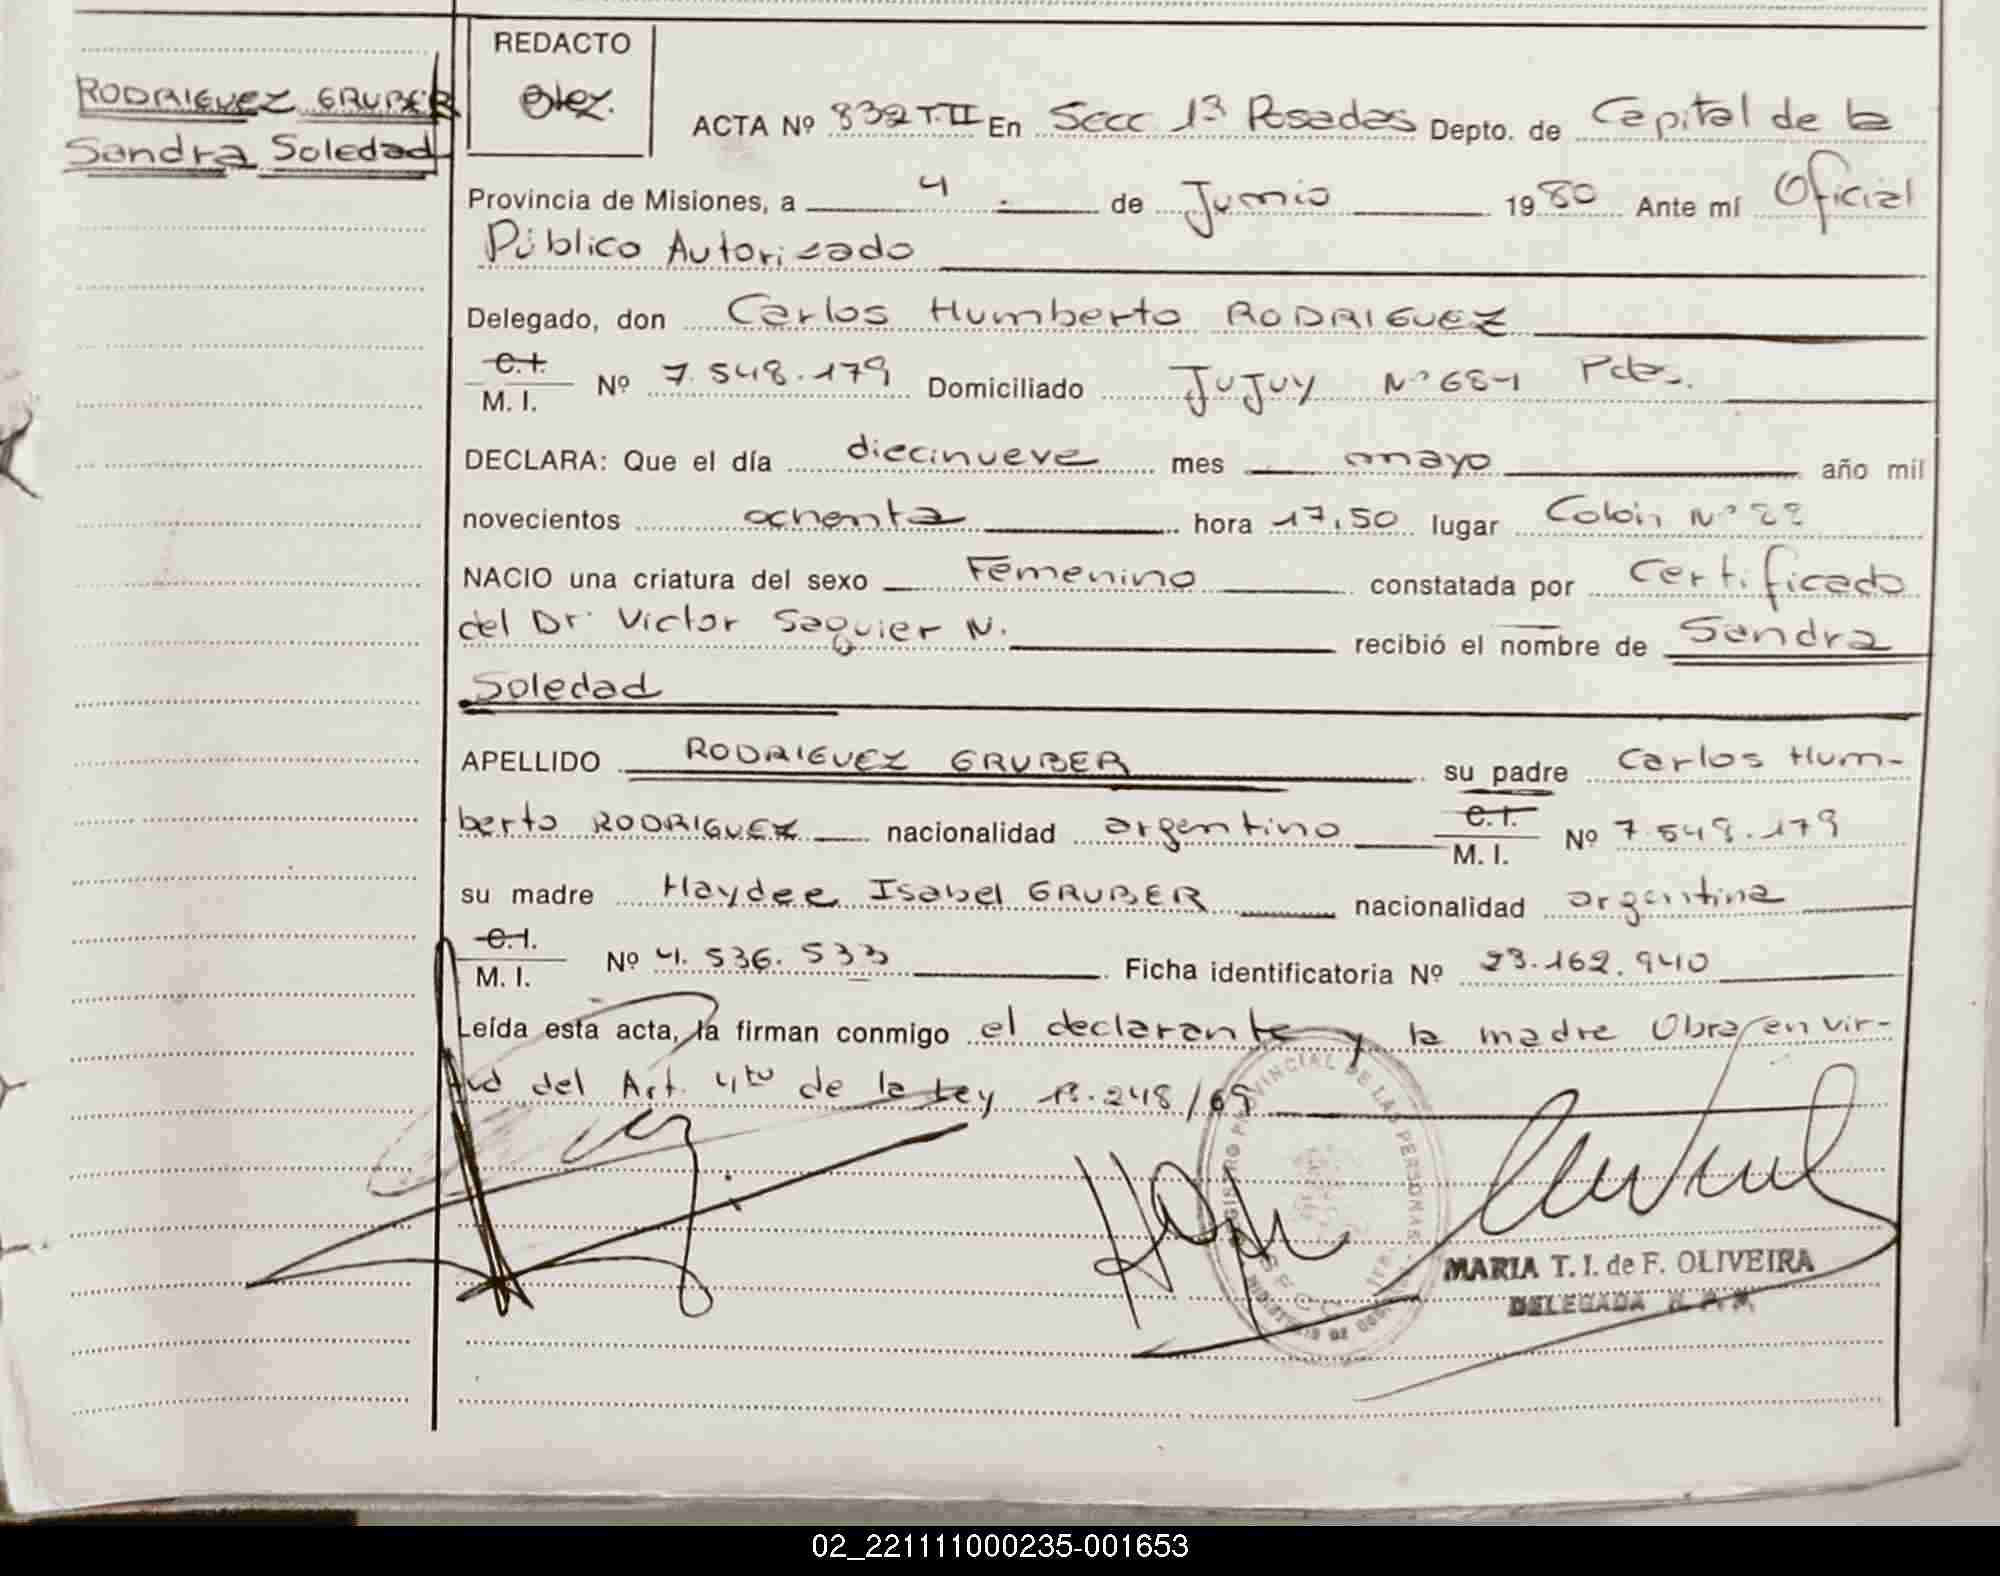 RODRIGUEZ GRUBER
Sandra Soledad
REDACTO
ACTA Nº 832 T.II En Secc 1ª Posadas Depto. de Capital de la
Provincia de Misiones, a 4 de Junio 1980 Ante mí Oficial
Público Autorizado
Delegado, don Carlos Humberto RODRIGUEZ
C.I.
M. I. Nº 7.548.179 Domiciliado Jujuy Nº 684 Pdas.
DECLARA: Que el día diecinueve mes mayo año mil
novecientos ochenta hora 17,50 lugar Colón Nº 22
NACIO una criatura del sexo Femenino constatada por Certificado
del Dr Victor Saguier N. recibió el nombre de Sandra
Soledad
APELLIDO RODRIGUEZ GRUBER su padre Carlos Hum-
berto RODRIGUEZ nacionalidad argentino C.I. M. I. Nº 7.548.179
su madre Haydee Isabel GRUBER nacionalidad argentina
C.I.
M. I. Nº 4.536.533 Ficha identificatoria Nº 23.162.940
Leída esta acta, la firman conmigo el declarante y la madre Obra en vir-
tud del Art. 4to de la Ley 18.248/69
REGISTRO PROVINCIAL DE LAS PERSONAS
MARIA T. I. de F. OLIVEIRA
DELEGADA
02_221111000235-001653